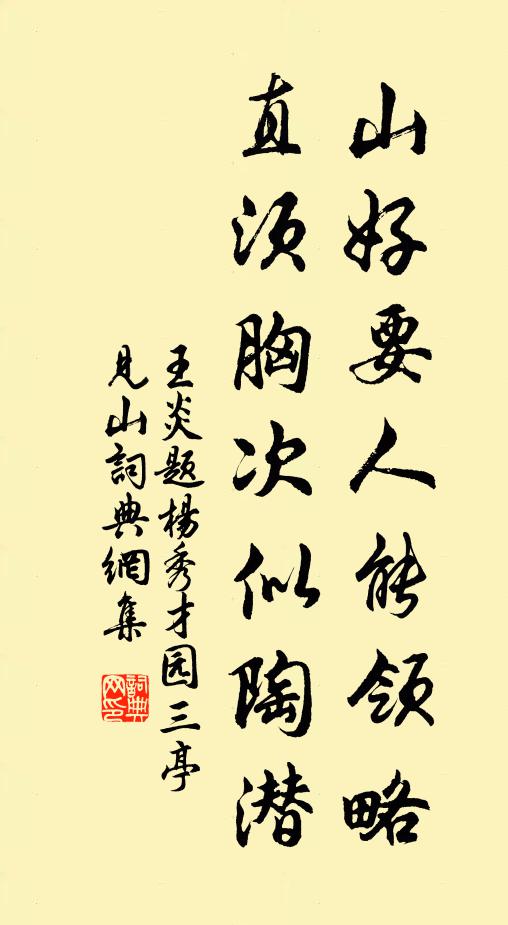 山好要人能领略
直须胸次似陶潜
王炎题楊秀才园三亭
見山詞典網集
詞典
网印